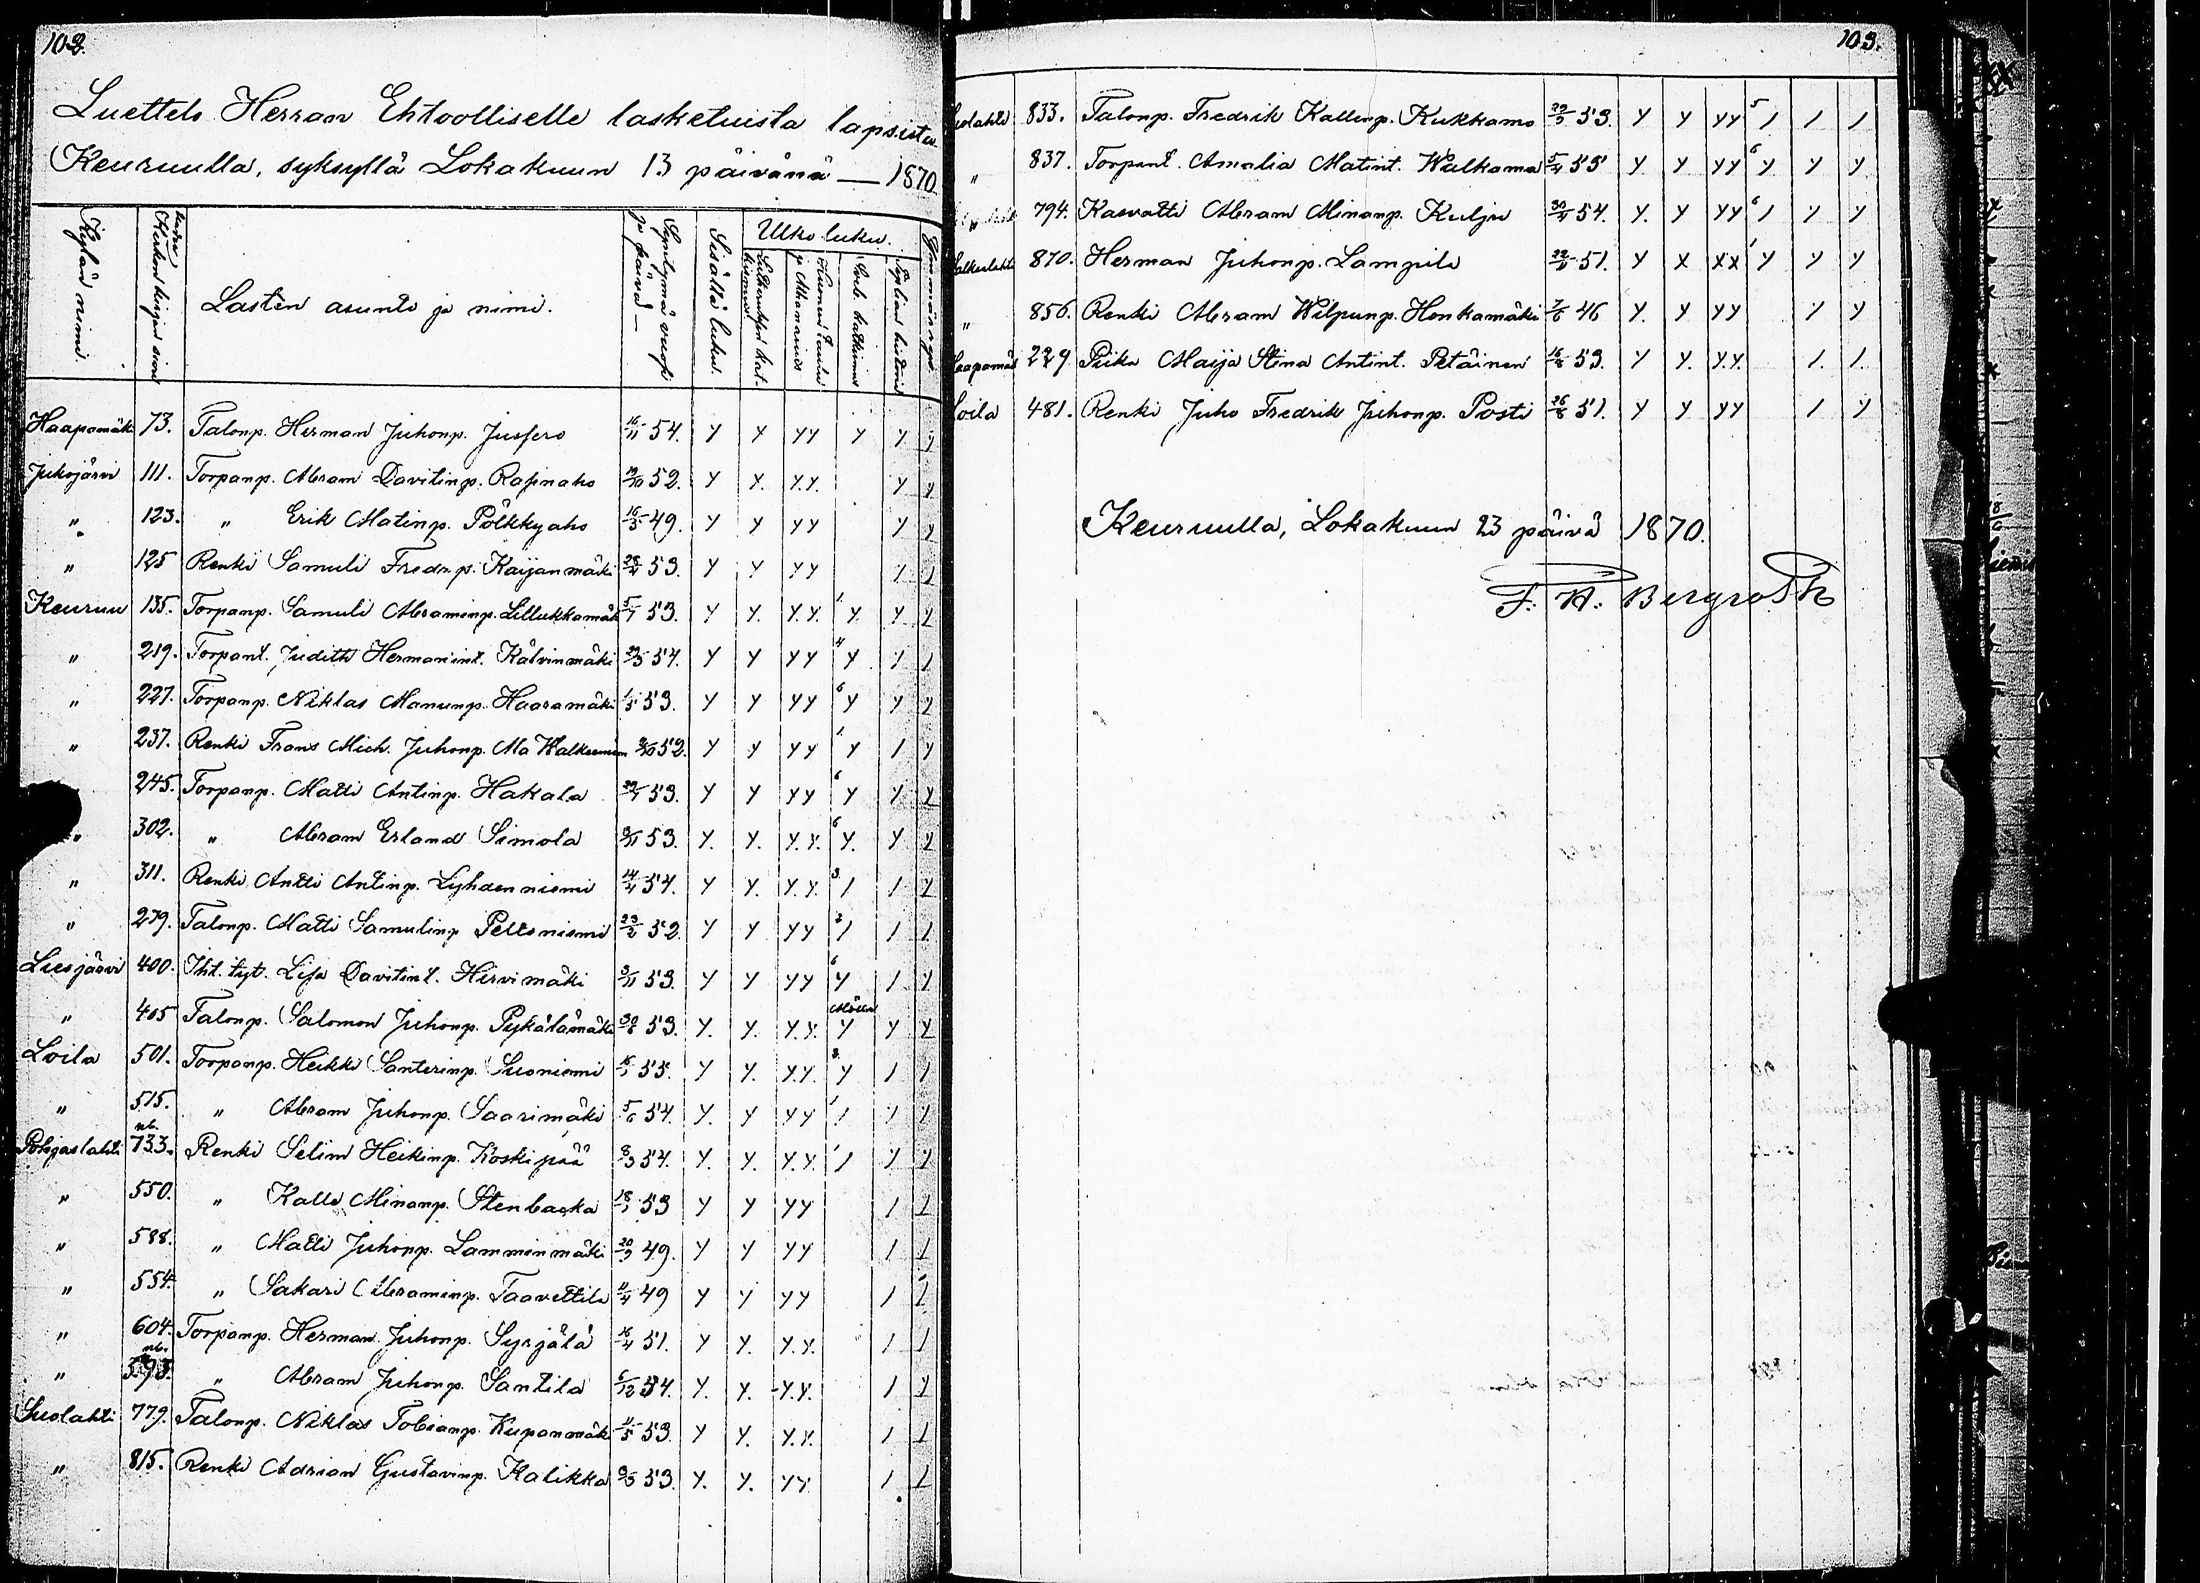 102.
Luettelo Herran Ehtoolliselle lasketuista lapsista
Keuruulla, syksyllä Lokakuun 13 päivänä — 1870.
Kylän nimi. Lasten asunto ja nimi. Syntymä vuosi ja päivä — Sisältä luku. Ulko luku.
Haapamäki 73. Talonp. Herman Juhonp. Jusfero 16/11 54. y y yy y y y
Jukojärvi 111. Torpanp. Abram Davitinp. Rasinaho 19/10 52. y y. y.y. y y
" 123. " Erik Matinp. Pölkkyaho 16/3 49. y y yy y y
" 125 Renki Samuli Fredr.p. Kaijanmäki 28/4 53. y y yy 1 1
Keuruu 135. Torpanp. Samuli Abraminp. Lillukkamäki 5/7 53. y y. y.y. 1. y. y y
" 219. Torpant. Judith Hermanint. Kalvinmäki 54. y y yy 4 y 1 1
" 227. Torpanp. Niklas Manunp. Haaramäki 1/5 53. y y yy 6 y y y
" 237. Renki Frans Mich. Juhonp. Ala Walkeinen 52. y y yy 1 y 1 y
" 245. Torpanp. Matti Antinp. Hakala 53. y y yy 6 y y y
" 302. " Abram Erland Simola 9/11 53. y. y. y.y. 6 y. y y
" 311. Renki Antti Antinp. Lyhdenniemi 14/4 54. y y. y.y. 3 1 1 y
" 279. Talonp. Matti Samulinp Peltoniemi 23/2 52. y y yy 2 1 1 1
Liesjärvi 400. Iht. tyt. Lisa Davitint. Hirvimäki 3/11 53. y y yy 6 y 1 y
" 405 Talonp. Salomon Juhonp. Pykälämäki 53. y. y. y.y. y y y
Loila 501. Torpanp. Heikki Santerinp. Suoniemi 55. y y. y.y. 3. y 1 1
" 515. " Abram Juhonp. Saarimäki 5/6 54. y. y yy 1 1 1 y
Pohjaslahti nb. 733. Renki Selim Heikinp. Koskipää 8/3 54. y. y. y.y. 1 1 y y
" 550. " Kalle Minanp. Stenbacka 53 y y yy 1 1
" 588. " Matti Juhonp. Lamminmäki 20/9 49. y y yy 1 1
" 554. " Sakari Abraminp. Taavettila 11/4 49 y y yy 1 1
" 604. Torpanp. Herman Juhonp. Syrjälä 16/4 51. y y. y.y. 1 1
" nb. 593. " Abram Juhonp. Santila 6/12 54. y. y. y.y. 1 y
Suolahti 779. Talonp. Niklas Tobianp. Kupanmäki 11/5 53. y y. y.y. 1 1
" 815. Renki Adrian Gustavinp. Kalikka 9/5 53. y. y. yy 1 1
103.
Suolahti 833. Talonp. Fredrik Kallenp. Kukkamo 53. y y yy 5 1 1 1
" 837. Torpant. Amalia Matint. Walkama 5/4 55 y. y yy 6 y y y
" 794. Kasvatti Abram Minanp. Kulju 54. y. y yy 6 1 y y
Valkealahti 870. Herman Juhonp. Lampila 51. y x xx 1 y y y
" 856. Renki Abram Wilpunp. Honkamäki 7/6 46 y. y yy 1 y
Haapamäki 229 Piika Maija Stina Antint. Petäinen 16/8 53. y y. y.y. 1. 1.
Loila 481. Renki Juho Fredrik Juhonp. Posti 26/8 51. y y yy 1 y
Keuruulla, Lokakuun 23 päivä 1870.
F. W. Bergroth